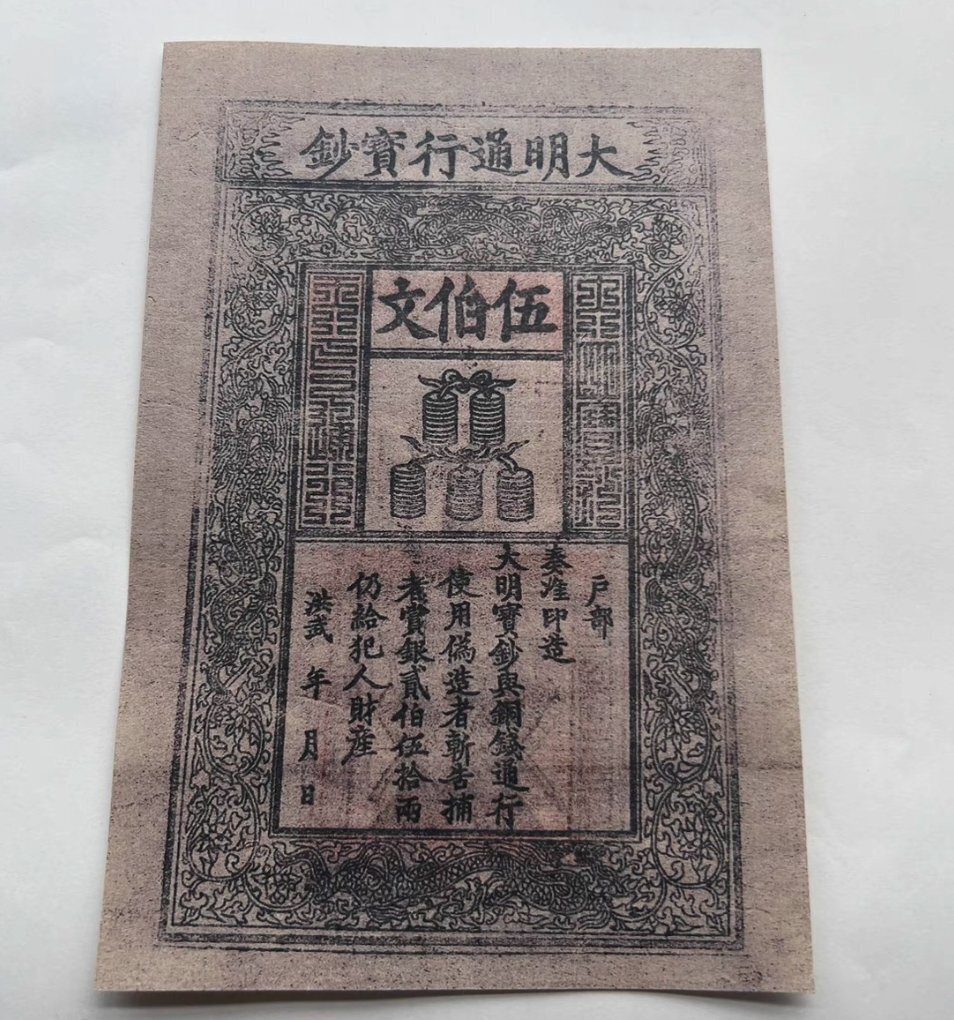 大明通行寶鈔
伍伯文
户部
奏准印造
大明寶鈔與銅錢通行
使用僞造者斬告捕
者賞銀貳伯伍拾兩
仍給犯人財産
洪武 年 月 日